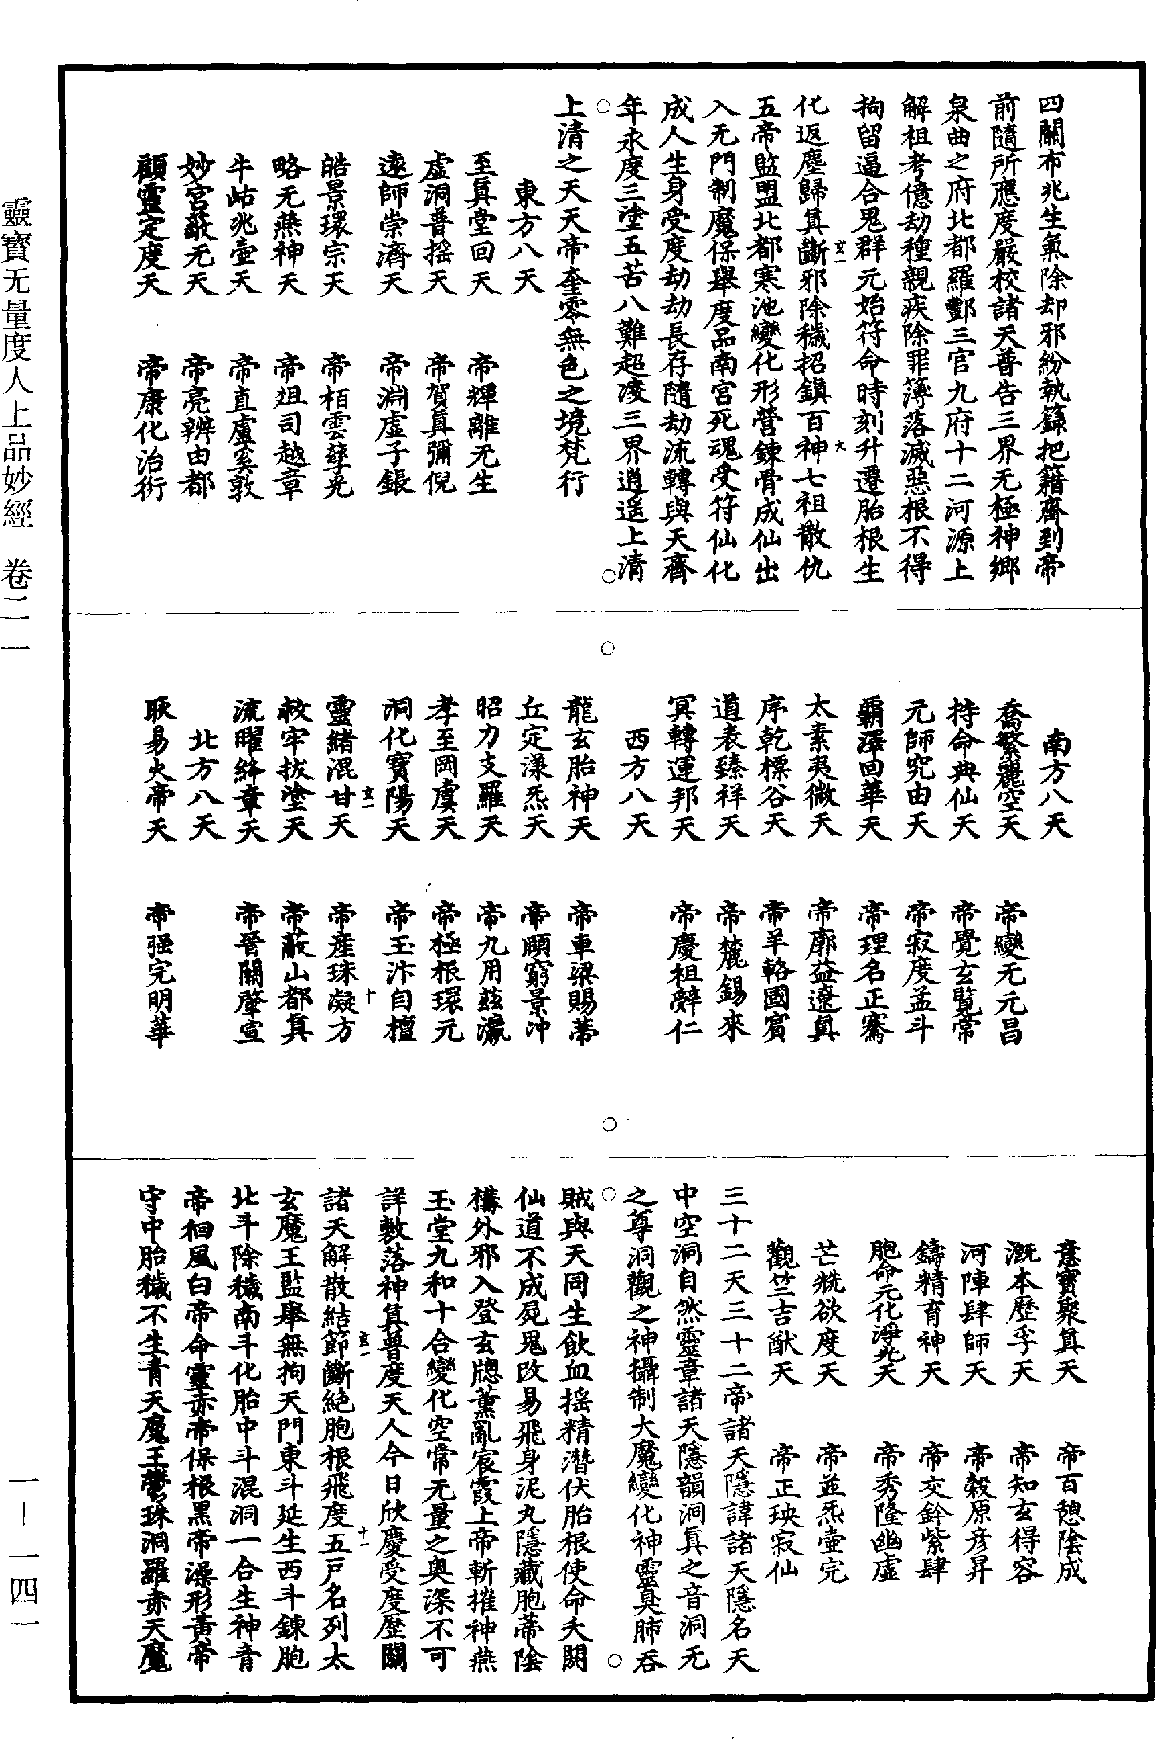 四關布兆生氣除却邪紛執籙把籍齊到帝
前隨所應度嚴校諸天普告三界无極神鄉
泉曲之府北都羅酆三官九府十二河源上
解祖考億劫種親疾除罪簿落滅惡根不得
拘留逼合鬼群元始符命時刻升遷胎根生
化返塵歸真斷邪除穢招鎮百神七祖散仇
五帝監盟北都寒池變化形營鍊骨成仙出
入无門制魔保舉度品南宮死魂受符仙化
成人生身受度劫劫長存隨劫流轉與天齊
年永度三塗五苦八難超凌三界逍遥上清
上清之天天帝奎零無色之境梵行
東方八天
至真堂回天 帝輝離无生
虛洞普摇天 帝賀真彌倪
遠師崇濟天 帝淵虛子鋃
皓景環宗天 帝栢雲孳尭
略无燕神天 帝俎司越章
牛岵兆壷天 帝直盧奚敦
妙宮蔽无天 帝亮辨由都
顧靈定度天 帝康化治衔
南方八天
喬繁麗空天 帝變无元昌
持命典仙天 帝覺玄覽常
元師究由天 帝寂度孟斗
覇澤回華天 帝理名正騫
太素夷微天 帝廓益遼真
序乾標谷天 帝羊輅國賓
道表臻祥天 帝麓錫來
冥轉運邦天 帝慶祖辭仁
西方八天
龍玄胎神天 帝車梁賜蒂
丘定漾炁天 帝頤窮景沖
昭力支羅天 帝九用兹濠
孝至岡虞天 帝極根環元
洞化寶陽天 帝玉汴自檀
靈緒混甘天 帝産珠凝方
赦牢拔塗天 帝蔽山都真
流曜絳章天 帝晉關肇宣
北方八天
耿易火帝天 帝强完明華
意寶聚真天 帝百憩陰成
溉本歷季天 帝知玄得容
河陣肆師天 帝穀原彦昇
鑄精育神天 帝交鈴紫肆
胞命元化淨兆天 帝秀隆幽虛
芒毓欲度天 帝並炁壷完
觀竺吉猷天 帝正玦寂仙
三十二天三十二帝諸天隱諱諸天隱名天
中空洞自然靈章諸天隱韻洞真之音洞无
之尊洞觀之神攝制大魔變化神靈真肺吞
賊與天同生飲血摇精潜伏胎根使命夭閼
仙道不成屍鬼改易飛身泥丸隱藏胞蒂陰
構外邪入登玄牕薰亂宸霞上帝斬摧神燕
玉堂九和十合變化空常无量之奥深不可
詳敷落神真普度天人今日欣慶受度歷關
諸天解散結節斷絶胞根飛度五戸名列太
玄魔王監舉無拘天門東斗延生西斗鍊胞
北斗除穢南斗化胎中斗混洞一合生神青
帝徊風白帝命靈赤帝保根黑帝澡形黄帝
守中胎穢不生青天魔王鬱珠洞羅赤天魔
靈寶无量度人上品妙經 卷二一
一—一四一